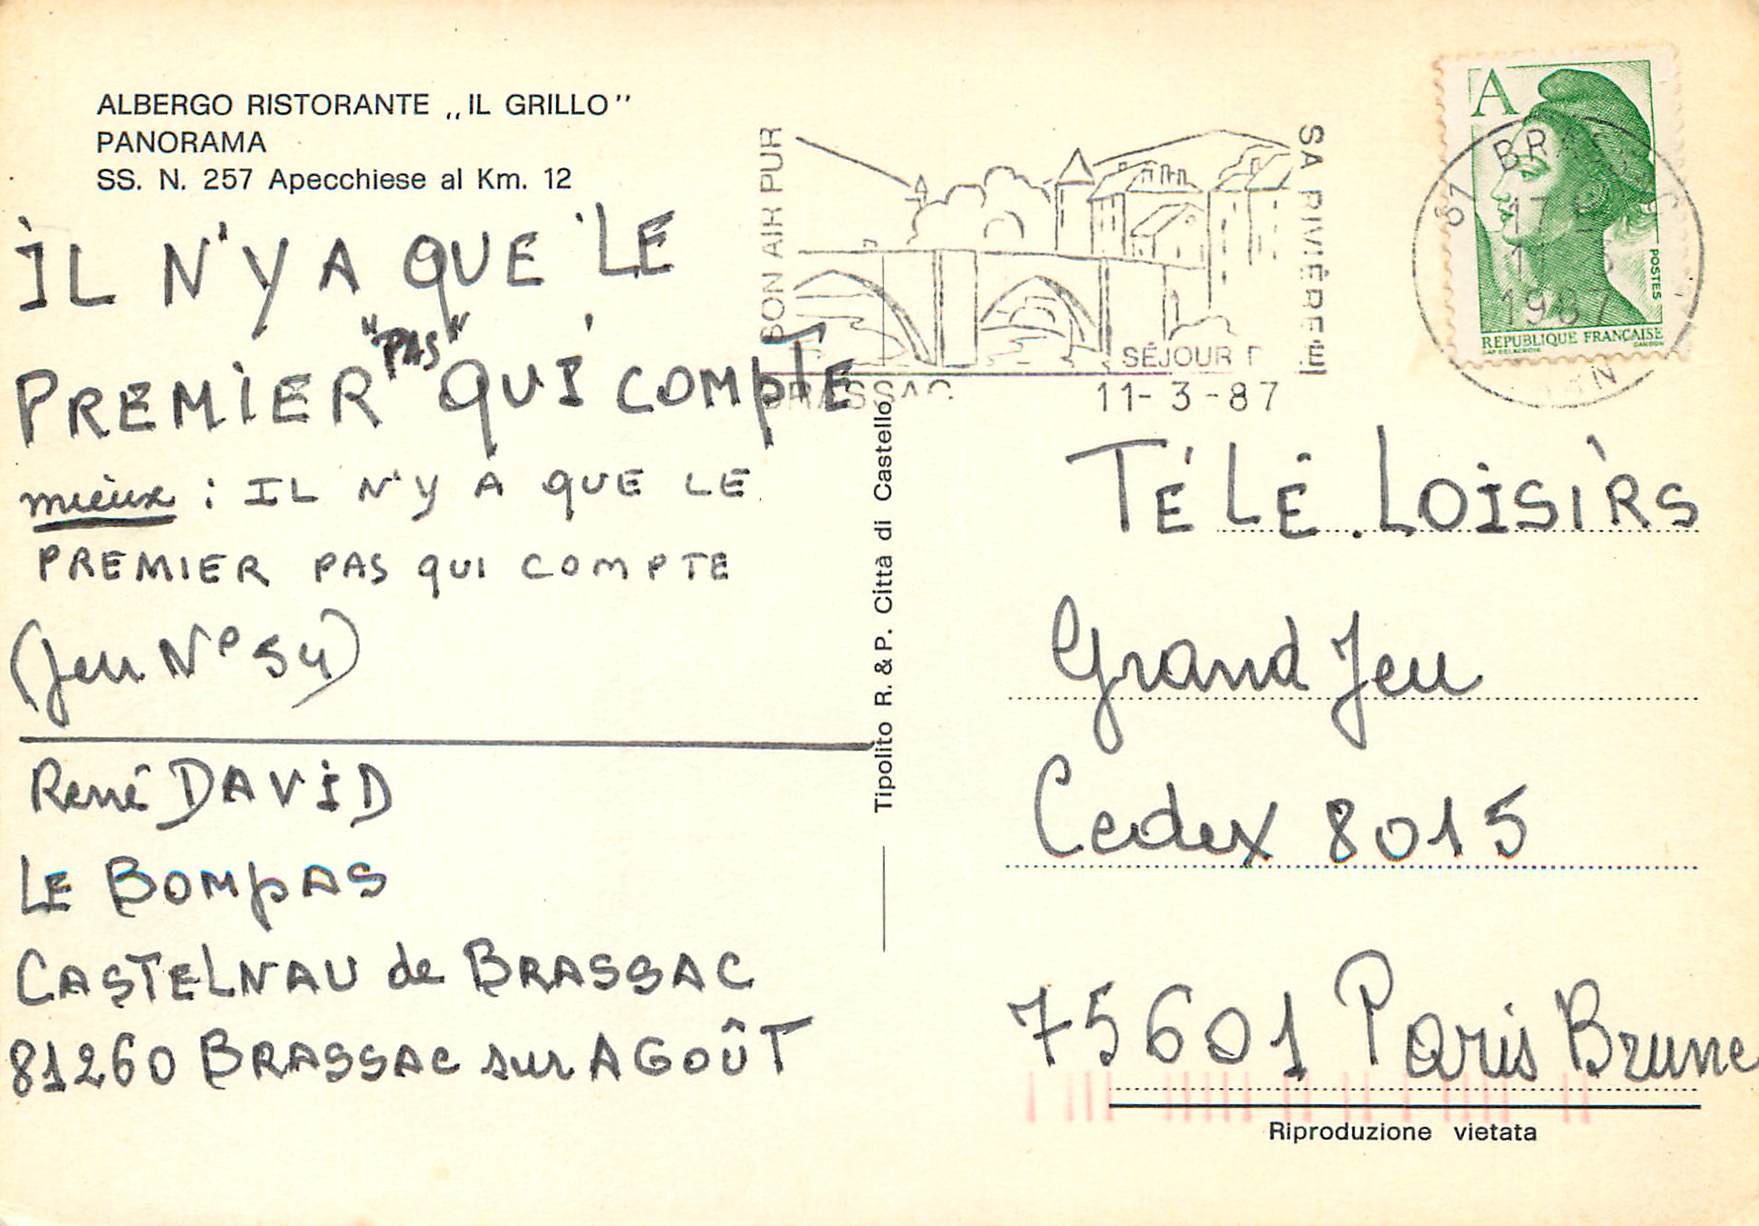 ALBERGO RISTORANTE „IL GRILLO''
PANORAMA
SS. N. 257 Apecchiese al Km. 12
IL N'Y A QUE LE
"PAS"
PREMIER QUI COMPTE
mieux : IL N'Y A QUE LE
PREMIER PAS QUI COMPTE
(Jeu N° 54)
René DAVID
LE BOMPAS
CASTELNAU de BRASSAC
81260 BRASSAC sur AGOÛT
Tipolito R. & P. Città di Castello
BON AIR PUR
SA RIVIÈRE
SÉJOUR
BRASSAC
11-3-87
A
POSTES
REPUBLIQUE FRANÇAISE
GANDON
1987
TÉLÉ.LOISIRS
Grand Jeu
Cedex 8015
75601 Paris Brune
Riproduzione vietata